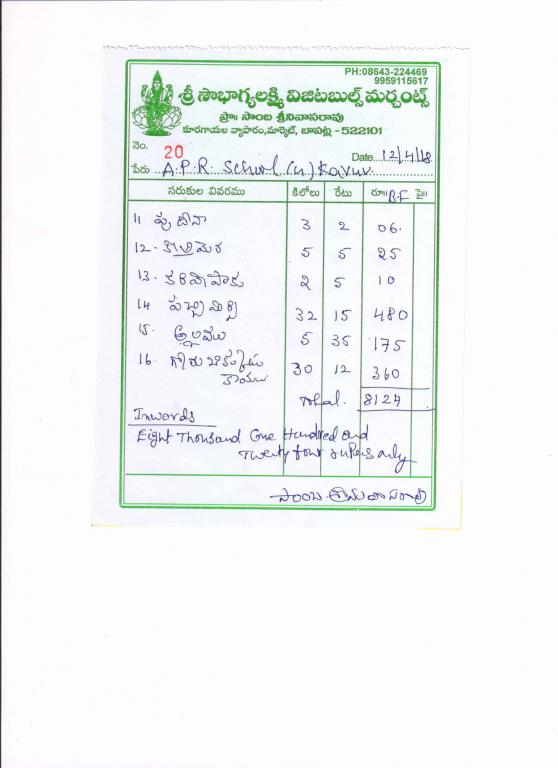 PH:08643-224469
9959115617
శ్రీ సౌభాగ్యలక్ష్మి విజిటబుల్స్ మర్చంట్స్
ప్రొః సాంబ శ్రీనివాసరావు
కూరగాయల వ్యాపారం,మార్కెట్, బాపట్ల - 522101
నెం. 20
Date 12/4/18
పేరు A.P.R. School (m) Kavur
సరుకుల వివరము కిలోలు రేటు రూ॥ B.F పై॥
11 పుదీనా 3 2 06.
12. కొత్తిమెర 5 5 25
13. కరివేపాకు 2 5 10
14 పచ్చిమిర్చి 32 15 480
15. అల్లము 5 35 175
16. గోరు 30 12 360
కాయలు
Total. 8124
Inwords
Eight Thousand One Hundred and
Twenty four rupees only
సాంబ